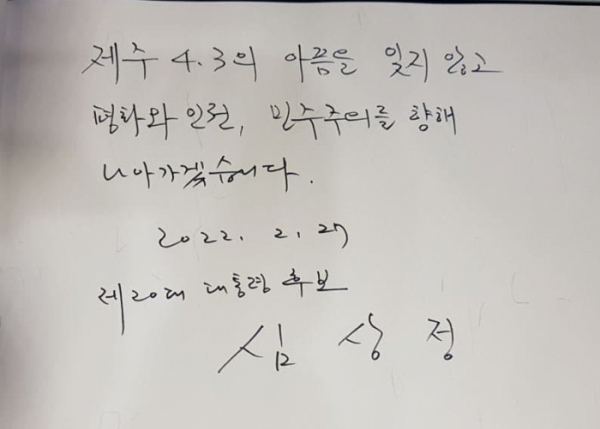 제주 4.3의 아픔을 잊지 않고
평화와 인권, 민주주의를 향해
나아가겠습니다.
2022. 2. 27
제20대 대통령 후보
심상정